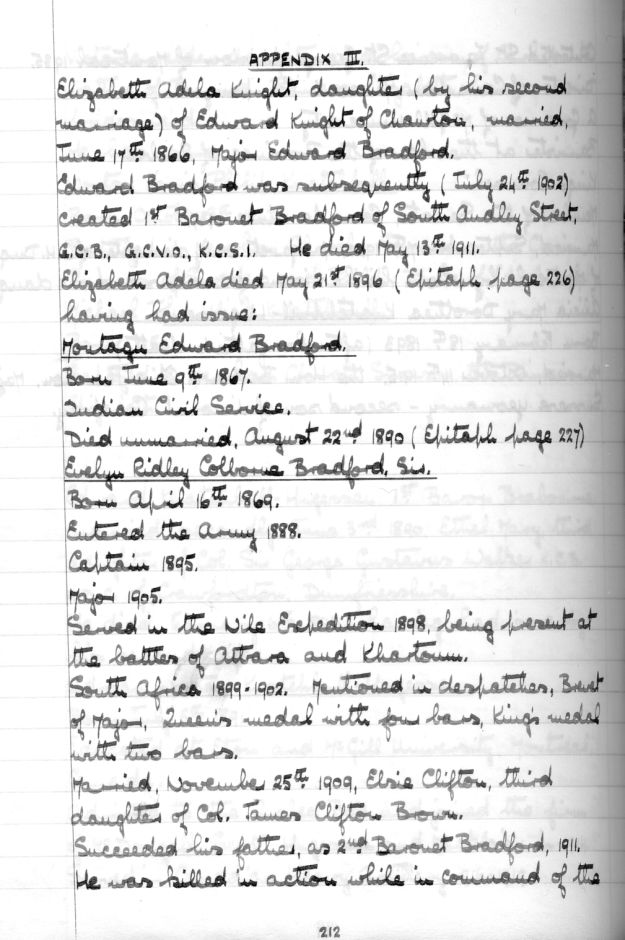 APPENDIX III.
Elizabeth Adela Knight, daughter (by his second
marriage) of Edward Knight of Chawton, married,
June 17th 1866, Major Edward Bradford.
Edward Bradford was subsequently (July 24th 1902)
created 1st Baronet Bradford of South Audley Street,
G.C.B., G.C.V.O., K.C.S.I. He died May 13th 1911.
Elizabeth Adela died May 21st 1896 (Epitaph page 226)
having had issue:
Montagu Edward Bradford.
Born June 9th 1867.
Indian Civil Service.
Died unmarried, August 22nd 1890 (Epitaph page 227)
Evelyn Ridley Colborne Bradford, Sir.
Born April 16th 1869.
Entered the Army 1888.
Captain 1895.
Major 1905.
Served in the Nile Expedition 1898, being present at
the battles of Atbara and Khartoum.
South Africa 1899-1902. Mentioned in despatches, Brevet
of Major, Queen's medal with four bars, King's medal
with two bars.
Married, November 25th 1909, Elsie Clifton, third
daughter of Col. James Clifton Brown.
Succeeded his father, as 2nd Baronet Bradford, 1911.
He was killed in action while in command of the
212